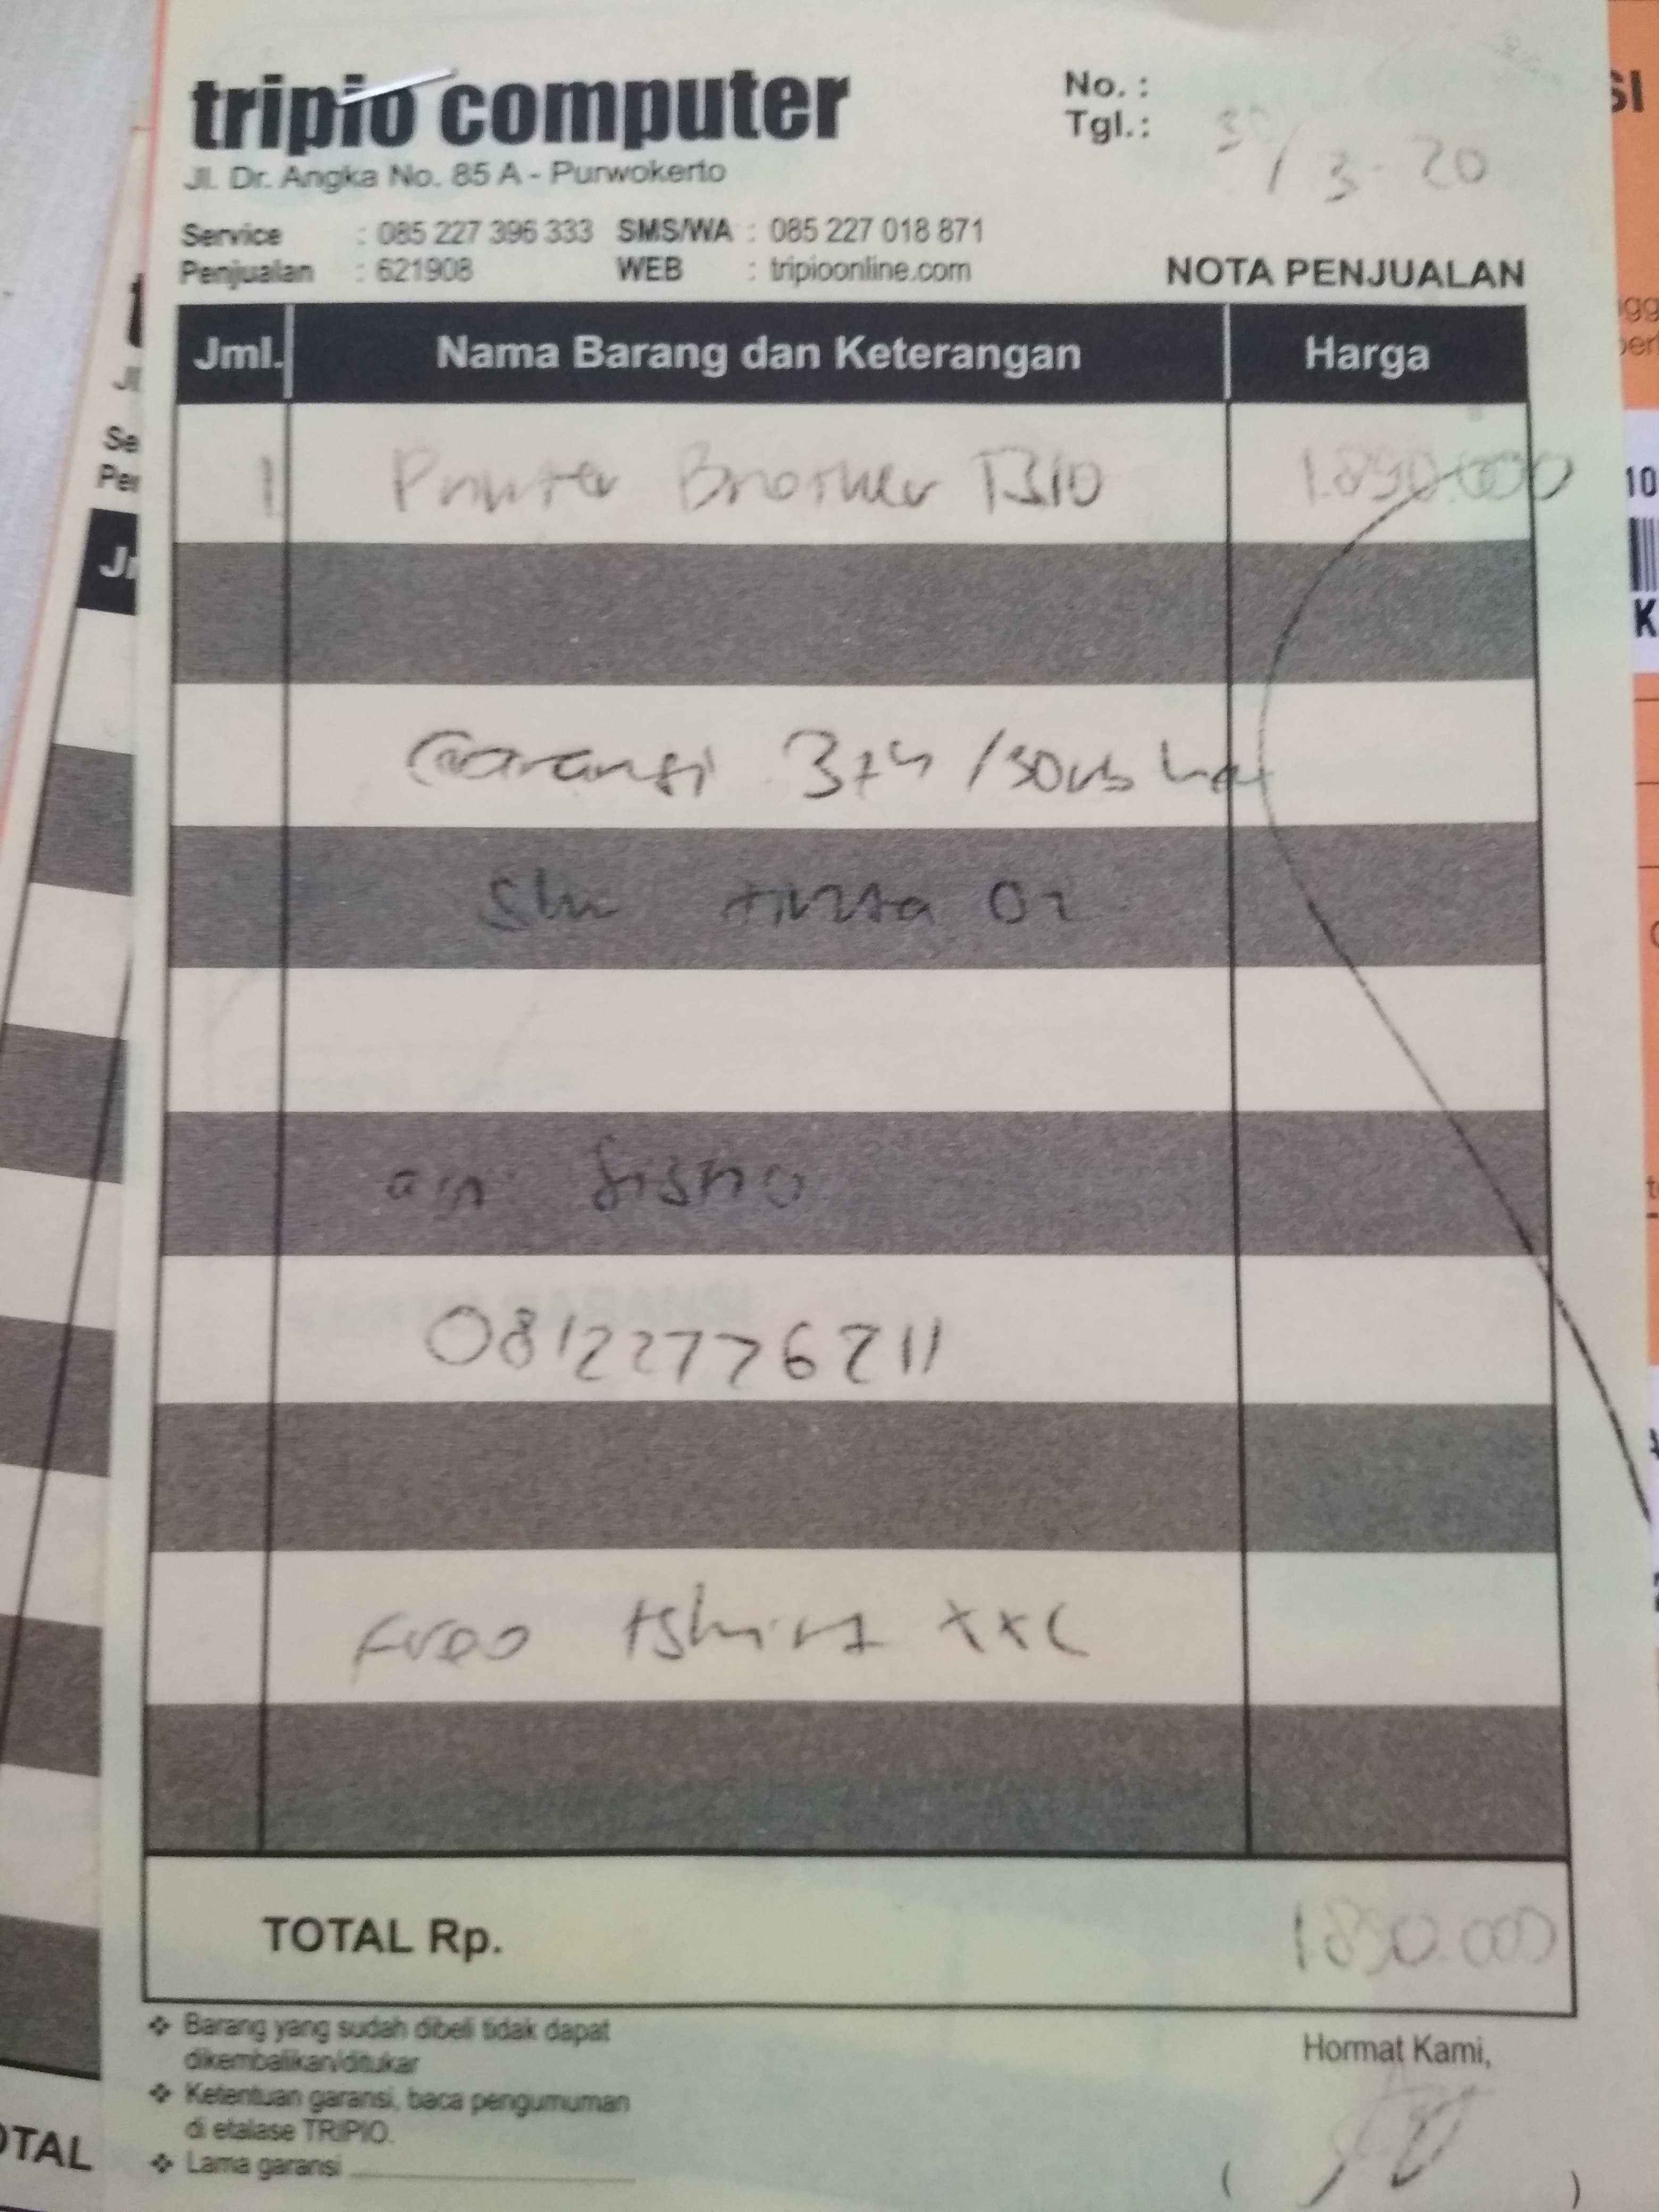 tripio computer
Jl. Dr. Angka No. 85 A - Purwokerto
No. :
Tgl. : 30/3-20
Service : 085 227 396 333 SMS/WA : 085 227 018 871
Penjualan : 621908 WEB : tripioonline.com
NOTA PENJUALAN
Jml. Nama Barang dan Keterangan Harga
1 Printer Brother T310 1.890.000
Garansi 3th /30rb
tinta Ori
an
08122776211
Free tshirt XXL
TOTAL Rp. 1.890.000
❖ Barang yang sudah dibeli tidak dapat
dikembalikan/ditukar
❖ Ketentuan garansi, baca pengumuman
di etalase TRIPIO.
❖ Lama garansi
Hormat Kami,
( )
Se
Per
OTAL
SI
10
K